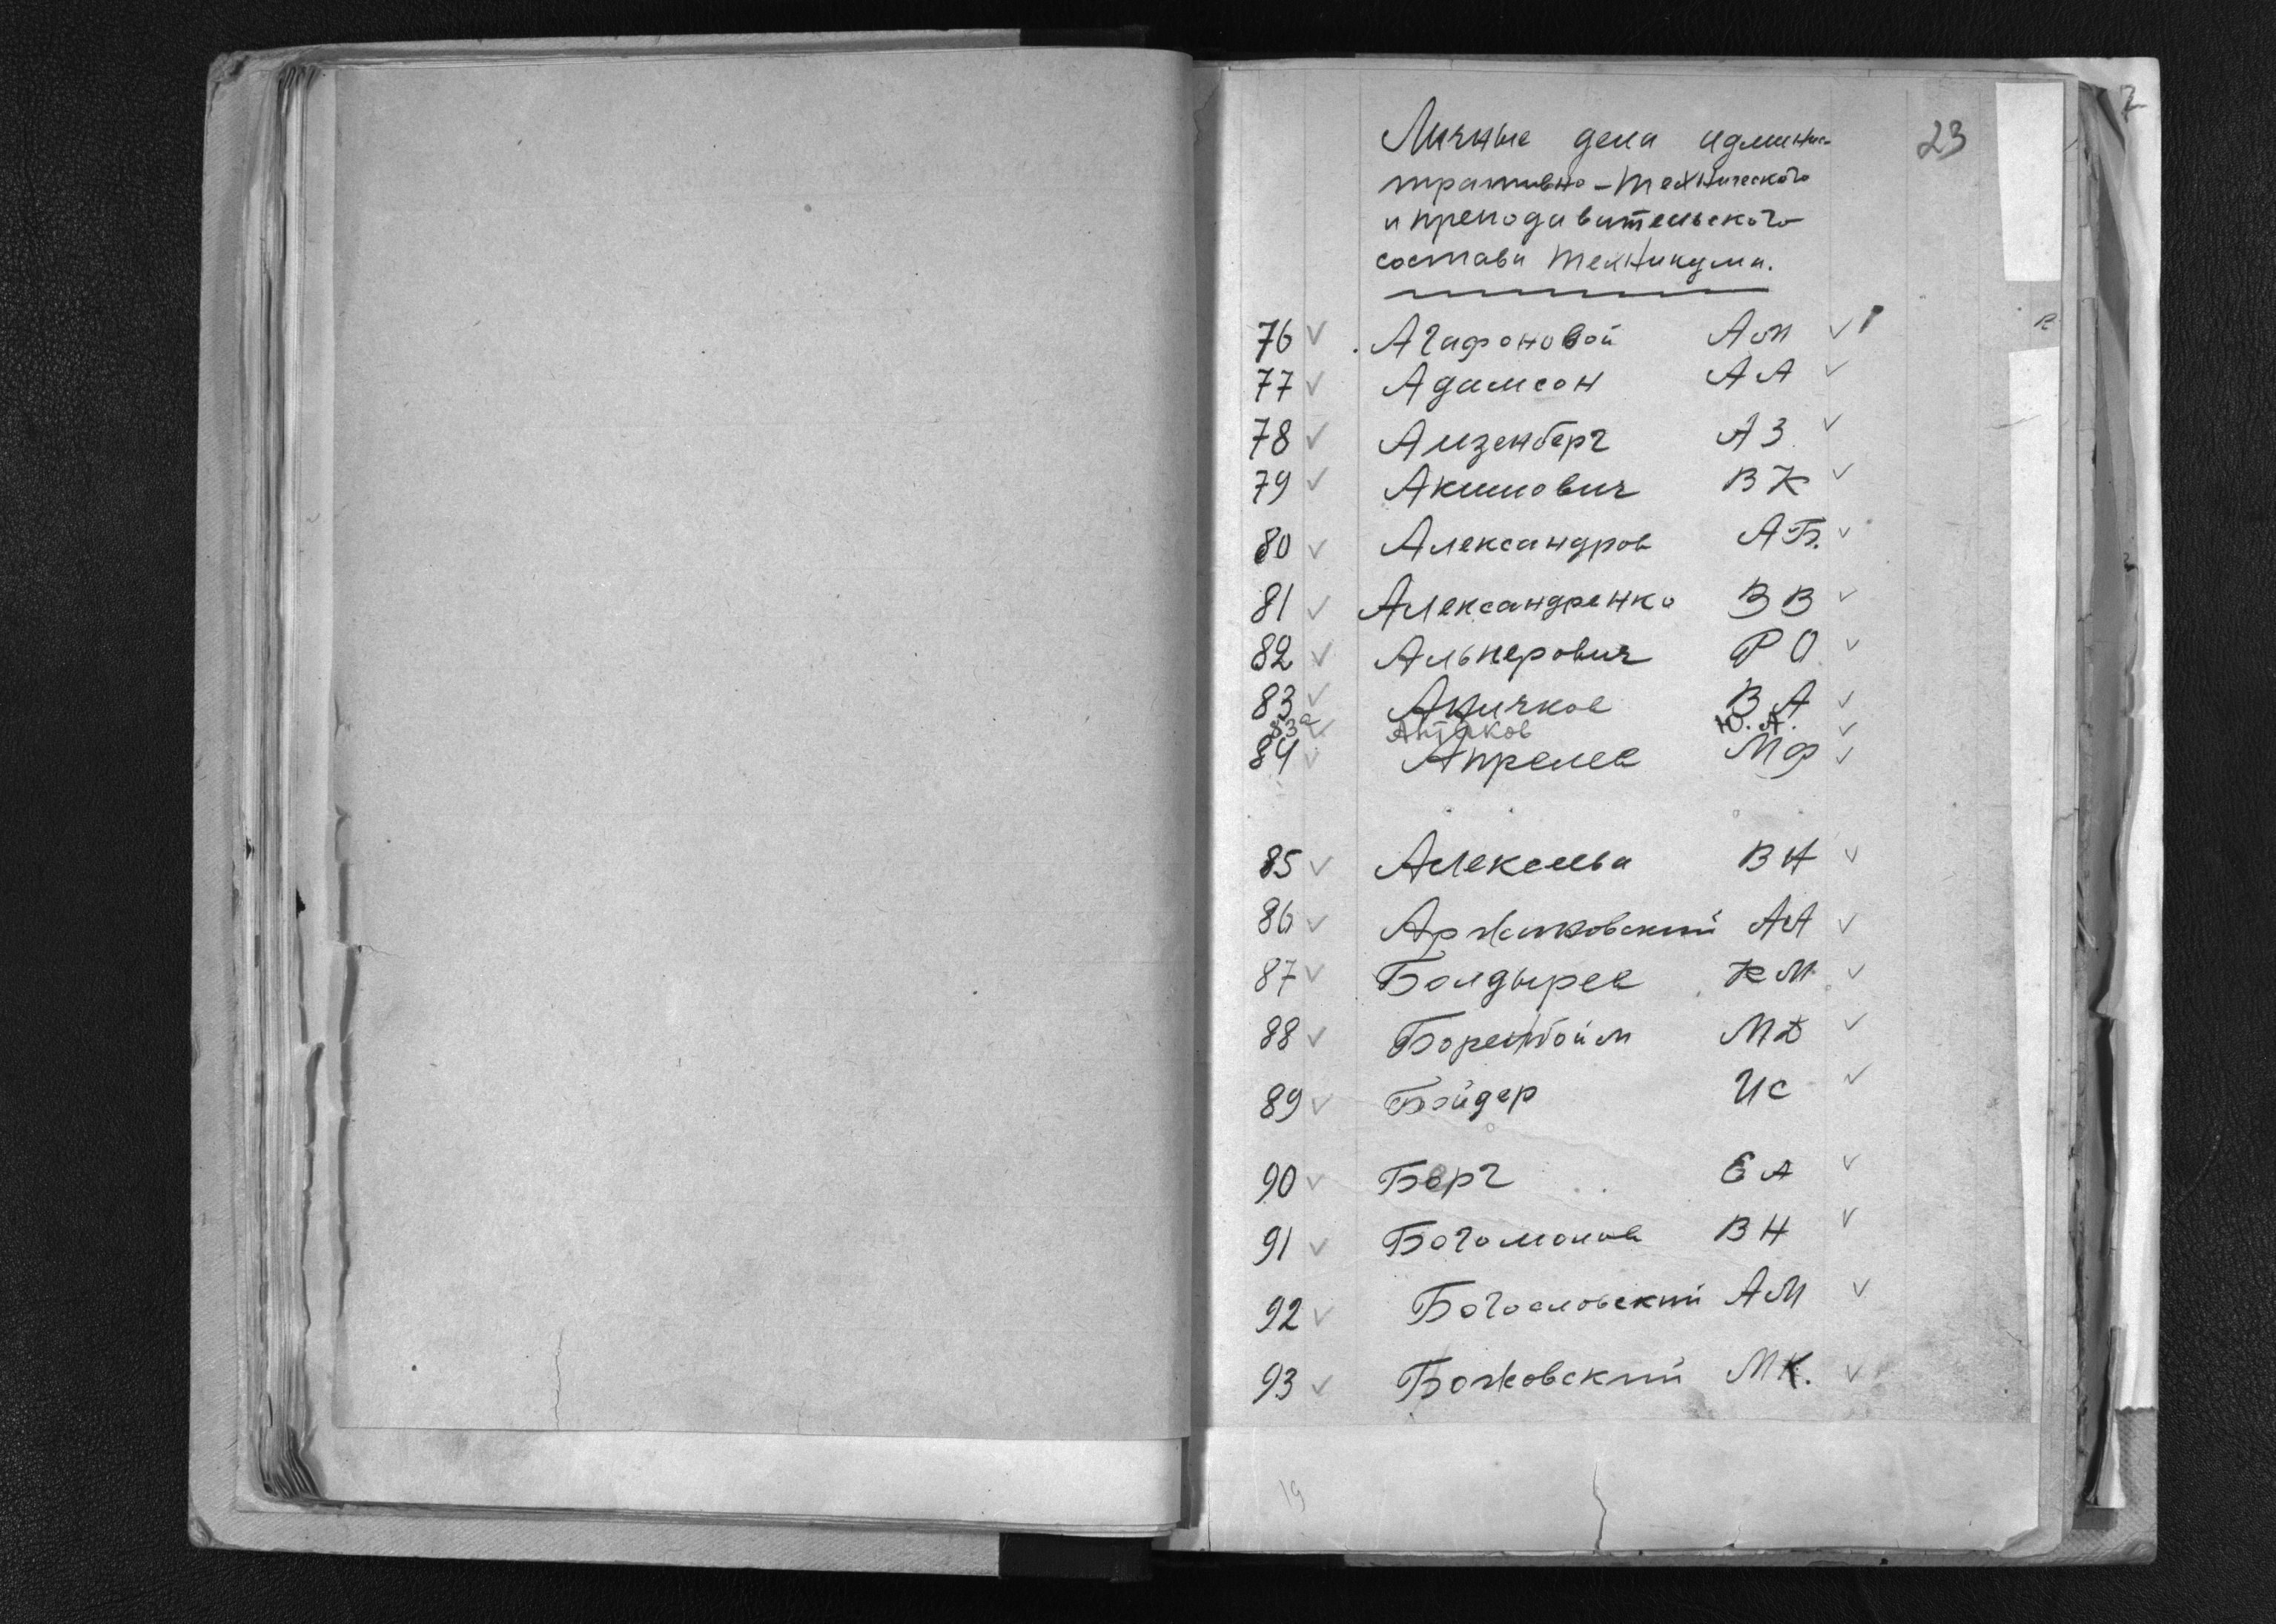 23
Личные дела админис-
тративно-технического
и преподавательского
состава техникума.
76 ✓ Агафоновой А М ✓
77 ✓ Адамсон А А ✓
78 ✓ Айзенберг А З ✓
79 ✓ Акимович В К ✓
80 ✓ Александров А Б. ✓
81 ✓ Александренко В В ✓
82 ✓ Альперович Р О ✓
83 ✓ Аничков В А ✓
83а ✓ Антаков Ю. А. ✓
84 ✓ Апрелев М Ф ✓
85 ✓ Алексеева В Н ✓
86 ✓ А А ✓
87 ✓ Болдырев К М ✓
88 ✓ Боренбойм М Д ✓
89 ✓ Бойдер И С ✓
90 ✓ Берг Е А ✓
91 ✓ Богомолов В Н ✓
92 ✓ Богословский А М ✓
93 ✓ Божовский М К. ✓
19